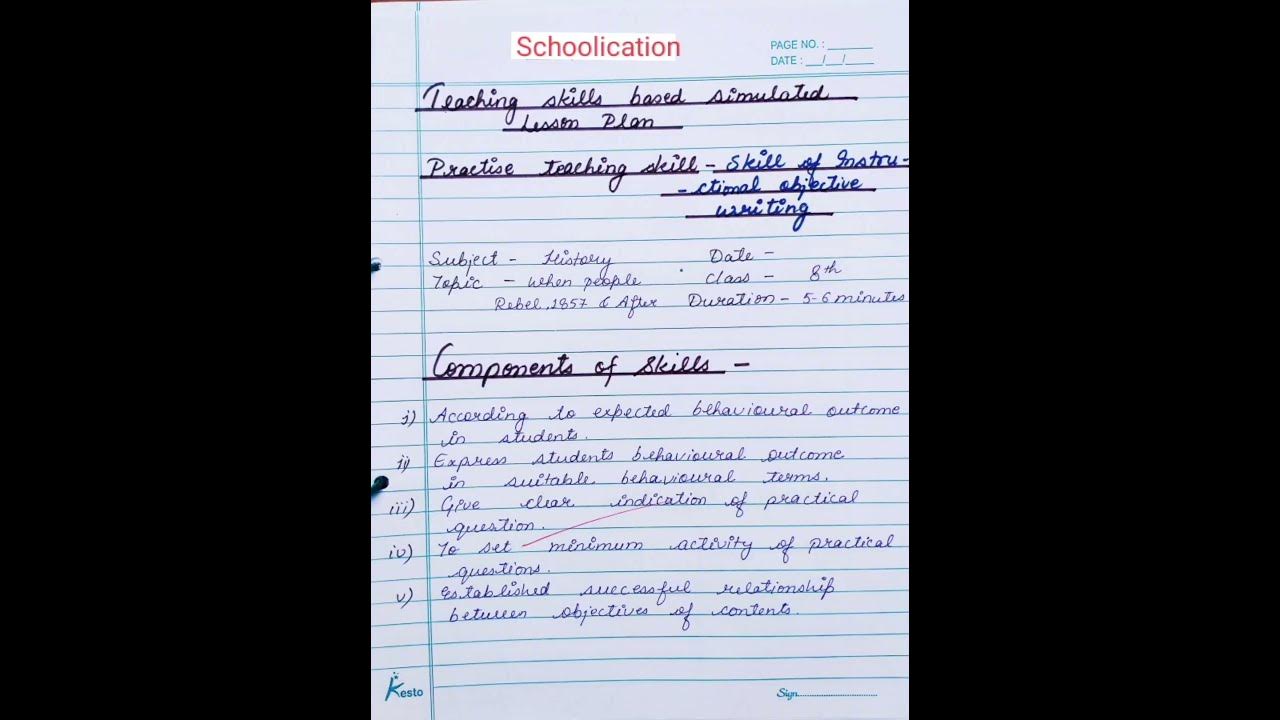 Schoolication
PAGE NO. : ________
DATE : __/__/____
Teaching skills based simulated
Lesson Plan
Practise teaching skill - Skill of Instru-
-ctional objective
writing
Subject - History Date -
Topic - when people Class - 8th
Rebel, 1857 & After Duration - 5-6 minutes
Components of Skills -
i) According to expected behavioural outcome
in students.
ii) Express students behavioural outcome
in suitable behavioural terms.
iii) Give clear indication of practical
question.
iv) To set minimum activity of practical
questions.
v) Established successful relationship
between objectives of contents.
Kesto
Sign...............................